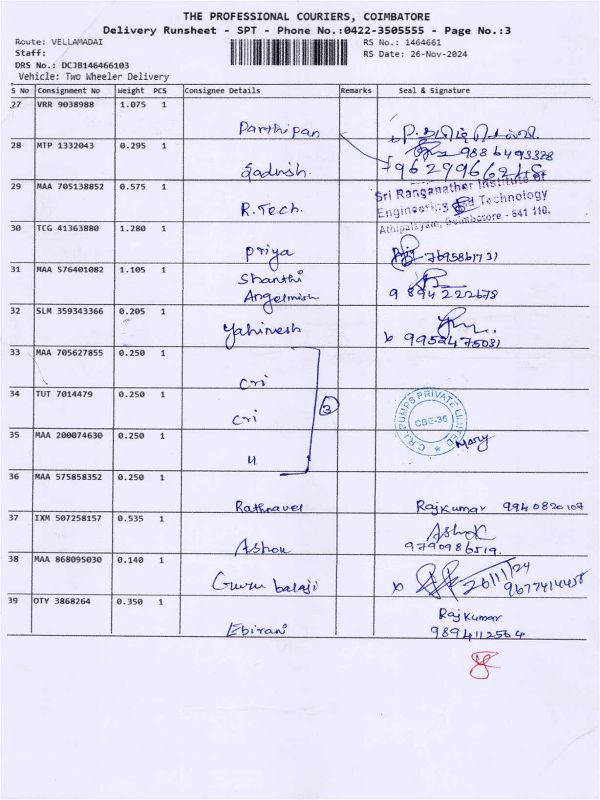 THE PROFESSIONAL COURIERS, COIMBATORE
Delivery Runsheet - SPT - Phone No.:0422-3505555 - Page No.:3
Route: VELLAMADAI RS No.: 1464661
Staff: RS Date: 26-Nov-2024
DRS No.: DCJB146466103
Vehicle: Two Wheeler Delivery
S No Consignment No Weight PCS Consignee Details Remarks Seal & Signature
27 VRR 9038988 1.075 1 Parthipan
28 MTP 1332043 0.295 1 9886493328
29 MAA 705138852 0.575 1 R.Tech. Sri Ranganathar Institute of
Engineering and Technology
Athipalayam, Coimbatore - 641 110.
30 TCG 41363880 1.280 1 Priya 7695861731
31 MAA 576401082 1.105 1 Shanthi
Angelmish 9894222678
32 SLM 359343366 0.205 1 Yahinesh 9952475081
33 MAA 705627855 0.250 1 Cri
34 TUT 7014479 0.250 1 Cri 3 C.R.I. PUMPS PRIVATE LIMITED
CBE-35
35 MAA 200074630 0.250 1 11 Mary
36 MAA 575858352 0.250 1 Rathnavel Rajkumar 9940820107
37 IXM 507258157 0.535 1 Ashok Ashok
9790986519.
38 MAA 868095030 0.140 1 Guru balaji 26/11/24
9677414458
39 OTY 3868264 0.350 1 Ebirani Rajkumar
9894112564